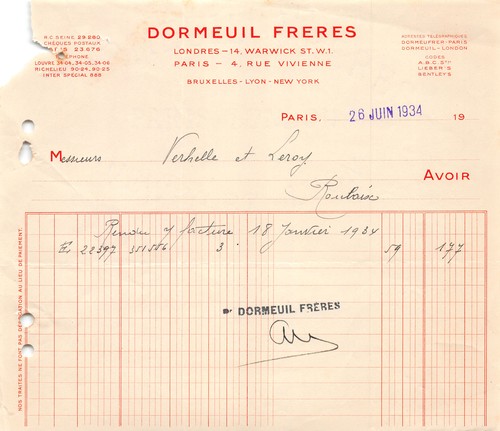 DORMEUIL FRERES
LONDRES – 14, WARWICK ST. W.1.
PARIS – 4, RUE VIVIENNE
BRUXELLES - LYON - NEW YORK
R.C. SEINE 29.280
CHÈQUES POSTAUX
23.676
LOUVRE 34-04, 34-05, 34-06
RICHELIEU 90-24, 90-25
INTER SPÉCIAL 888
ADRESSES TÉLÉGRAPHIQUES
DORMEUFRER-PARIS
DORMEUIL-LONDON
CODES
A.B.C. 5TH
LIEBER'S
BENTLEY'S
PARIS, 26 JUIN 1934 19
Messieurs Verhelle et Leroy
AVOIR
Roubaix
Rendu s/ facture 18 Janvier 1934
22397 351556 3 59 177
DORMEUIL FRÈRES
NOS TRAITES NE FONT PAS DÉROGATION AU LIEU DE PAIEMENT.